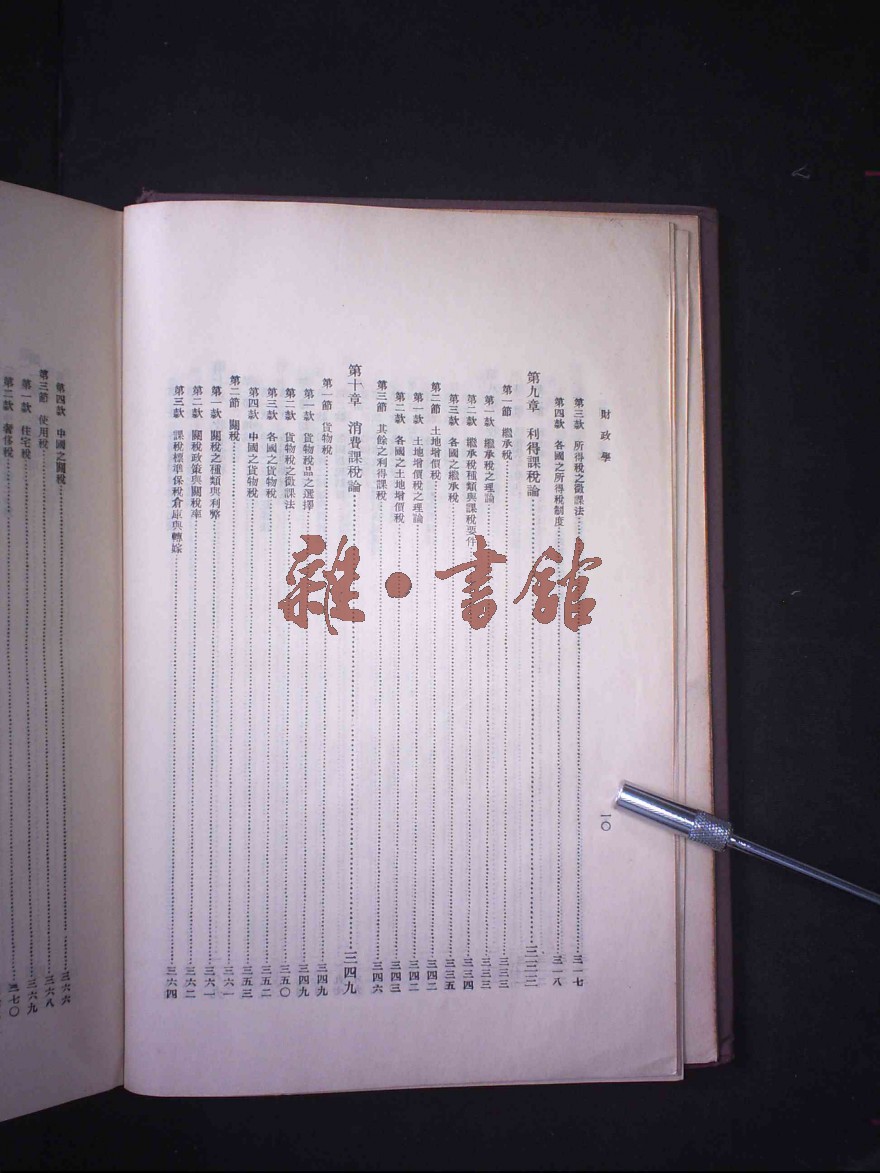 財政學
一〇
第三款 所得稅之徵課法 三一七
第四款 各國之所得稅制度 三一八
第九章 利得課稅論 三三三
第一節 繼承稅 三三三
第一款 繼承稅之理論 三三三
第二款 繼承稅種類與課稅要件 三三四
第三款 各國之繼承稅 三三五
第二節 土地增價稅 三四二
第一款 土地增價稅之理論 三四二
第二款 各國之土地增價稅 三四三
第三節 其餘之利得課稅 三四六
第十章 消費課稅論 三四九
第一節 貨物稅 三四九
第一款 貨物稅品之選擇 三四九
第二款 貨物稅之徵課法 三五〇
第三款 各國之貨物稅 三五二
第四款 中國之貨物稅 三五三
第二節 關稅 三六一
第一款 關稅之種類與利弊 三六一
第二款 關稅政策與關稅率 三六二
第三款 課稅標準保稅倉庫與轉嫁 三六四
第四款 中國之關稅 三六六
第三節 使用稅 三六八
第一款 住宅稅 三六九
第二款 奢侈稅 三七〇
雜·書館